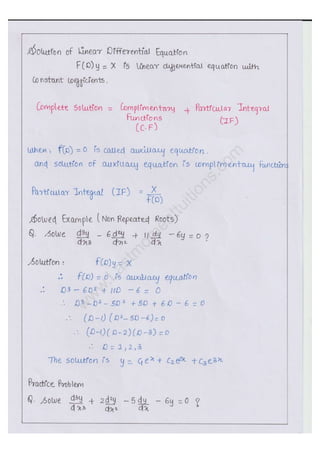 Solution of Linear Differential Equation
F(D)y = X is Linear differential equation with
Constant coefficients.
Complete Solution = Complimentary + Particular Integral
Functions (IF)
(C.F)
when, f(D) = 0 is called auxiliary equation.
and solution of auxiliary equation is complimentary functions
Particular Integral (IF) = X / f(D)
Solved Example (Non Repeated Roots)
Q. Solve d³y/dx³ - 6 d²y/dx² + 11 dy/dx - 6y = 0 ?
Solution: f(D)y = X
∴ f(D) = 0 is auxiliary equation
∴ D³ - 6D² + 11D - 6 = 0
∴ D³ - D² - 5D² + 5D + 6D - 6 = 0
∴ (D-1) (D² - 5D - 6) = 0
∴ (D-1)(D-2)(D-3) = 0
∴ D = 1, 2, 3
The solution is y = C₁eˣ + C₂e²ˣ + C₃e³ˣ
Practice Problem
Q. Solve d³y/dx³ + 2 d²y/dx² - 5 dy/dx - 6y = 0 ?